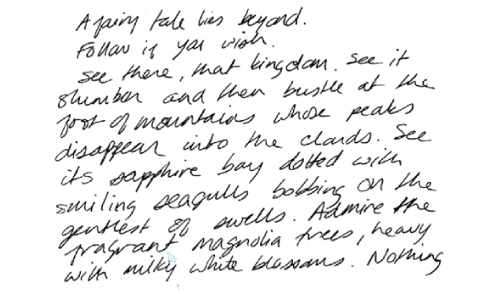 A fairy tale lies beyond.
Follow if you wish.
See there, that kingdom. See it
slumber and then bustle at the
foot of mountains whose peaks
disappear into the clouds. See
its sapphire bay dotted with
smiling seagulls bobbing on the
gentlest of swells. Admire the
fragrant magnolia trees, heavy
with milky white blossoms. Nothing